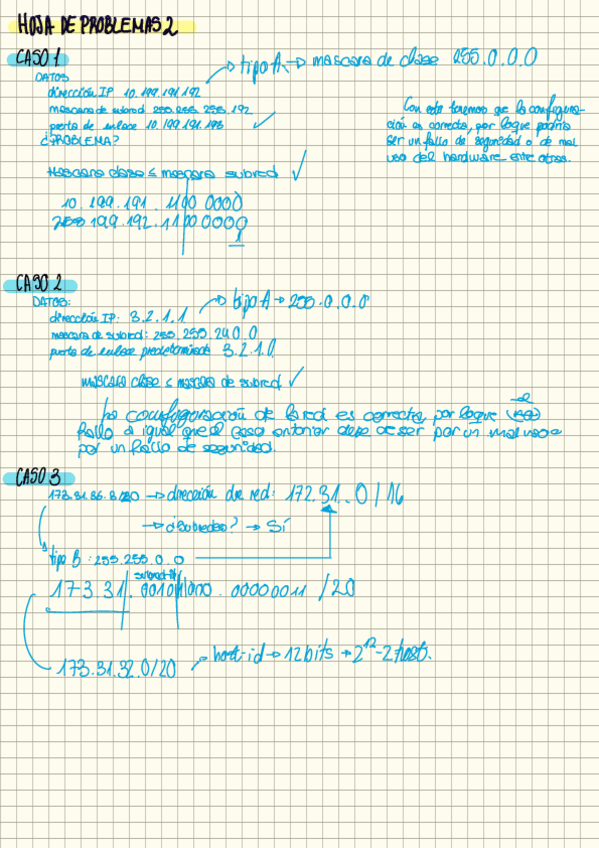 HOJA DE PROBLEMAS 2
CASO 1
DATOS
dirección IP 10.199.191.192
mascara de subred 255.255.255.192
puerta de enlace 10.199.191.193
¿PROBLEMA?
→ tipo A → mascara de clase 255.0.0.0
Con esto tenemos que la configura-
ción es correcta, por loque podría
ser un fallo de seguridad o de mal
uso del hardware entre otros.
Mascara clase ≤ mascara subred ✓
10.199.191.1100 0000
199.192.1100 0000
1
CASO 2
DATOS:
dirección IP: 3.2.1.1
→ tipo A → 255.0.0.0
mascara de subred: 255.255.240.0
puerta de enlace predeterminada 3.2.1.0
mascara clase ≤ mascara de subred ✓
la configuración de la red es correcta, por loque el
fallo a igual que el caso anterior debe de ser por un mal uso o
por un fallo de seguridad.
CASO 3
→ dirección de red: 172.31.0/16
→ ¿Subredes? → Sí
tipo B: 255.255.0.0
subred-id
173.31.00101000.00000011 /20
173.31.32.0/20
→ host-id → 12 bits → 2^12-2 host.